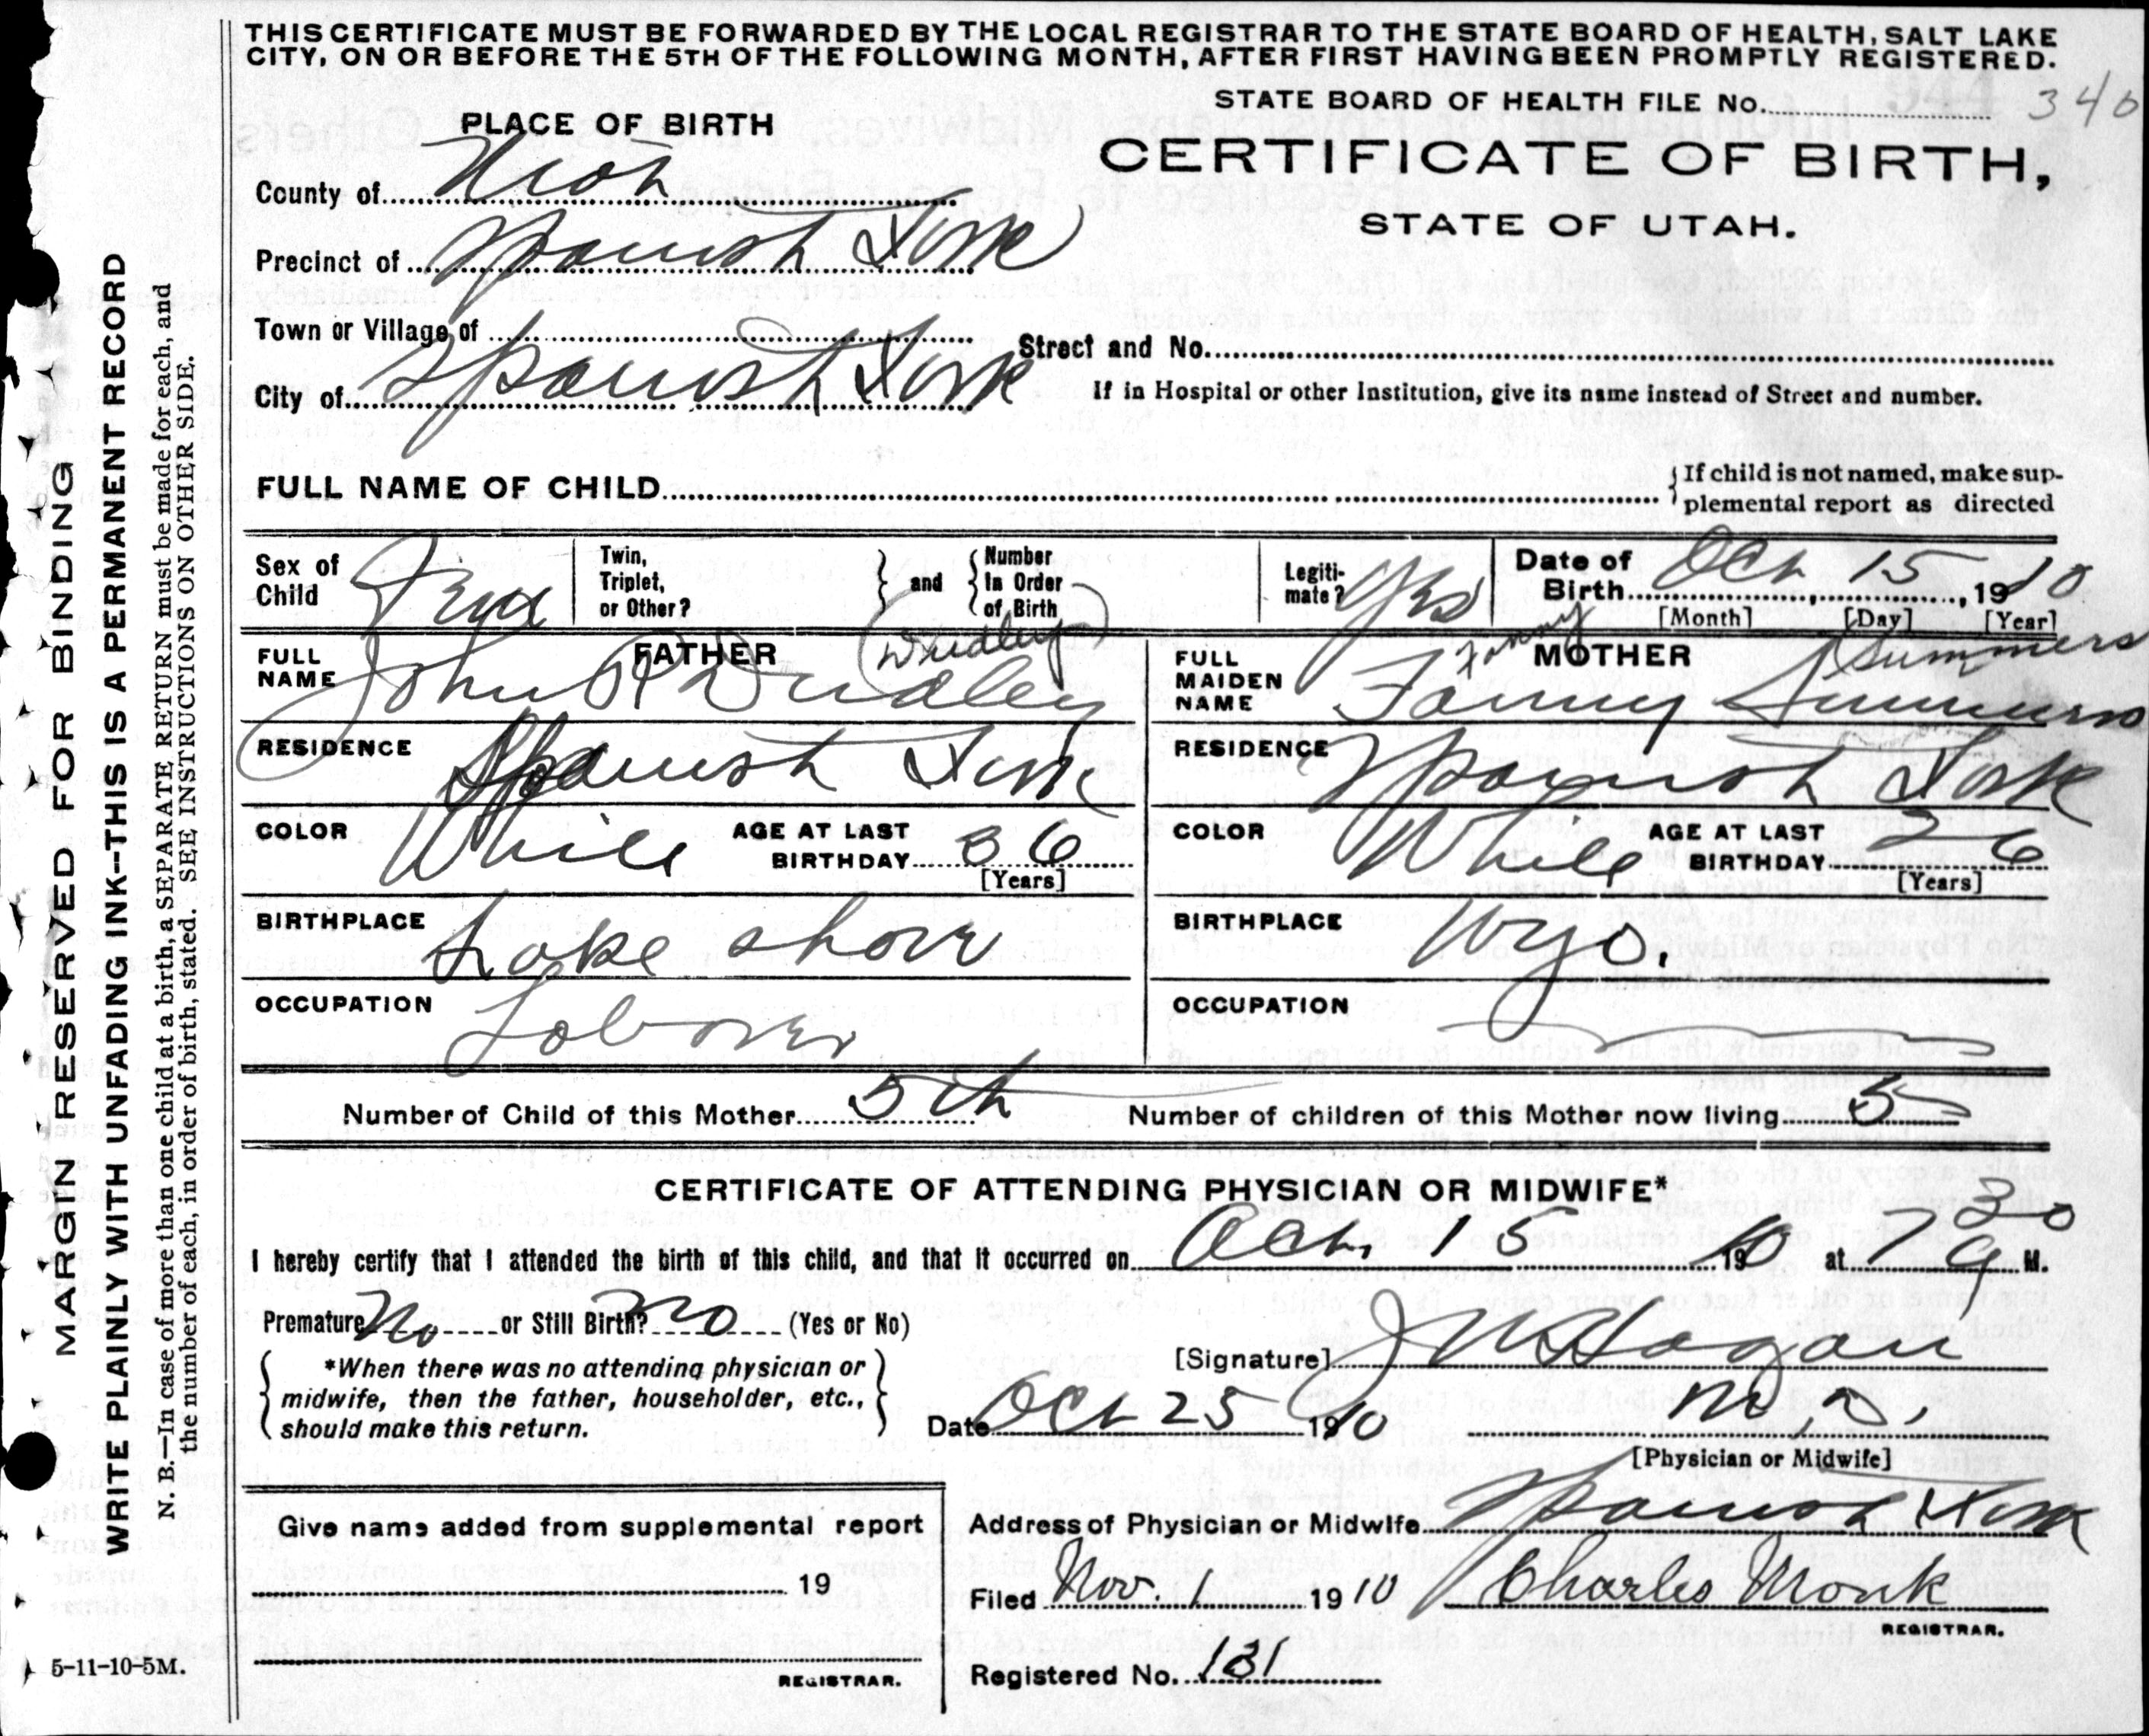 THIS CERTIFICATE MUST BE FORWARDED BY THE LOCAL REGISTRAR TO THE STATE BOARD OF HEALTH, SALT LAKE
CITY, ON OR BEFORE THE 5TH OF THE FOLLOWING MONTH, AFTER FIRST HAVING BEEN PROMPTLY REGISTERED.
STATE BOARD OF HEALTH FILE No. 944 340
PLACE OF BIRTH
CERTIFICATE OF BIRTH,
STATE OF UTAH.
County of Utah
Precinct of Spanish Fork
Town or Village of
Street and No.
City of Spanish Fork
If in Hospital or other Institution, give its name instead of Street and number.
FULL NAME OF CHILD
If child is not named, make sup-
plemental report as directed
Sex of
Child Fem
Twin,
Triplet,
or Other?
and
Number
in Order
of Birth
Legiti-
mate? Yes
Date of
Birth Oct 15, 1910
[Month] [Day] [Year]
FATHER
FULL
NAME John R Dudley (Dudley)
MOTHER
FULL
MAIDEN
NAME Fanny Summers
Fanny Summers
RESIDENCE Spanish Fork
RESIDENCE Spanish Fork
COLOR White AGE AT LAST
BIRTHDAY 36
[Years]
COLOR White AGE AT LAST
BIRTHDAY 26
[Years]
BIRTHPLACE Lake Shore
BIRTHPLACE Wyo.
OCCUPATION Laborer
OCCUPATION
Number of Child of this Mother 5th
Number of children of this Mother now living 5
CERTIFICATE OF ATTENDING PHYSICIAN OR MIDWIFE*
I hereby certify that I attended the birth of this child, and that it occurred on Oct. 15 1910 at 7 30 a M.
Premature No or Still Birth? No (Yes or No)
*When there was no attending physician or
midwife, then the father, householder, etc.,
should make this return.
[Signature] J W Hagan
Date Oct 25 1910 M.D.
[Physician or Midwife]
Give name added from supplemental report
19
REGISTRAR.
Address of Physician or Midwife Spanish Fork
Filed Nov. 1 1910 Charles Monk
REGISTRAR.
Registered No. 131
MARGIN RESERVED FOR BINDING
WRITE PLAINLY WITH UNFADING INK—THIS IS A PERMANENT RECORD
N. B.—In case of more than one child at a birth, a SEPARATE RETURN must be made for each, and
the number of each, in order of birth, stated. SEE INSTRUCTIONS ON OTHER SIDE.
5-11-10-5M.